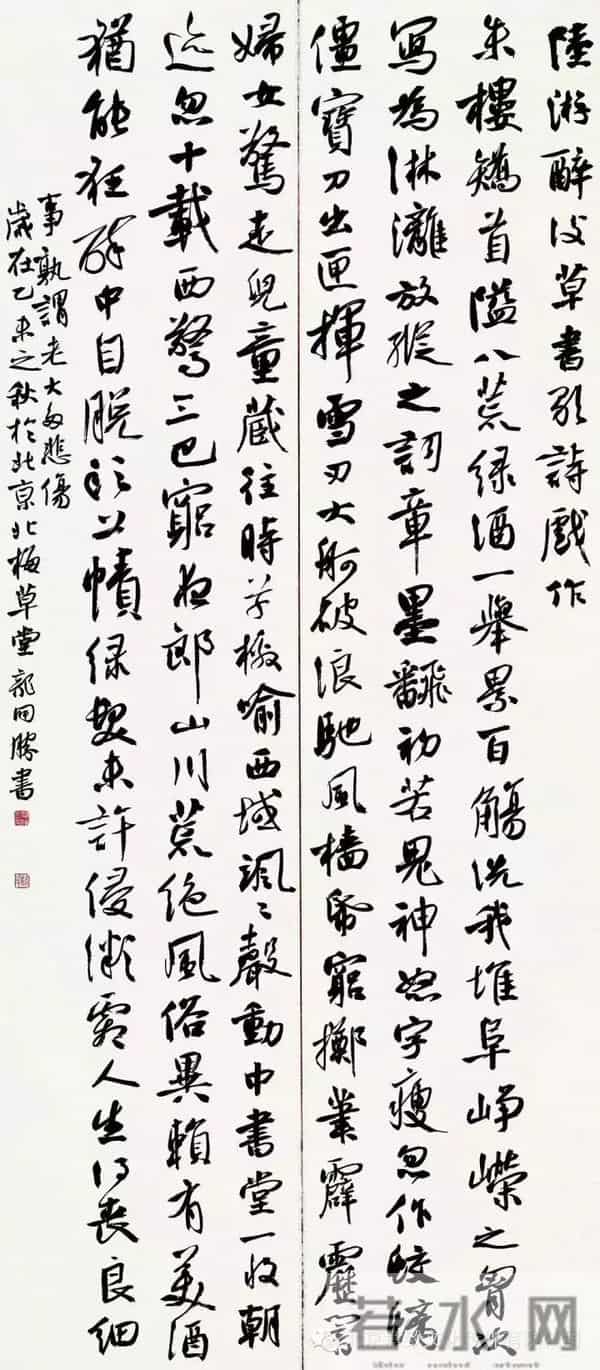 陸游醉後草書歌詩戲作
朱樓矯首隘八荒绿酒一舉累百觴洗我堆阜崢嶸之胷次
寫為淋灕放縱之詞章墨翻初若鬼神怒字瘦忽作蛟螭
僵寶刀出匣揮雪刃大舸破浪馳風檣紙窮擲筆霹靂響
婦女驚走兒童藏往時草檄喻西域颯々聲動中書堂一收朝
迹忽十載西騖三巴窮夜郎山川荒绝風俗異賴有美酒
猶能狂醉中自脱頭上幘绿髮未許侵微霜人生得喪良細
事孰謂老大多悲傷
歲在乙未之秋於北京北梅草堂郭同勝書
若水网